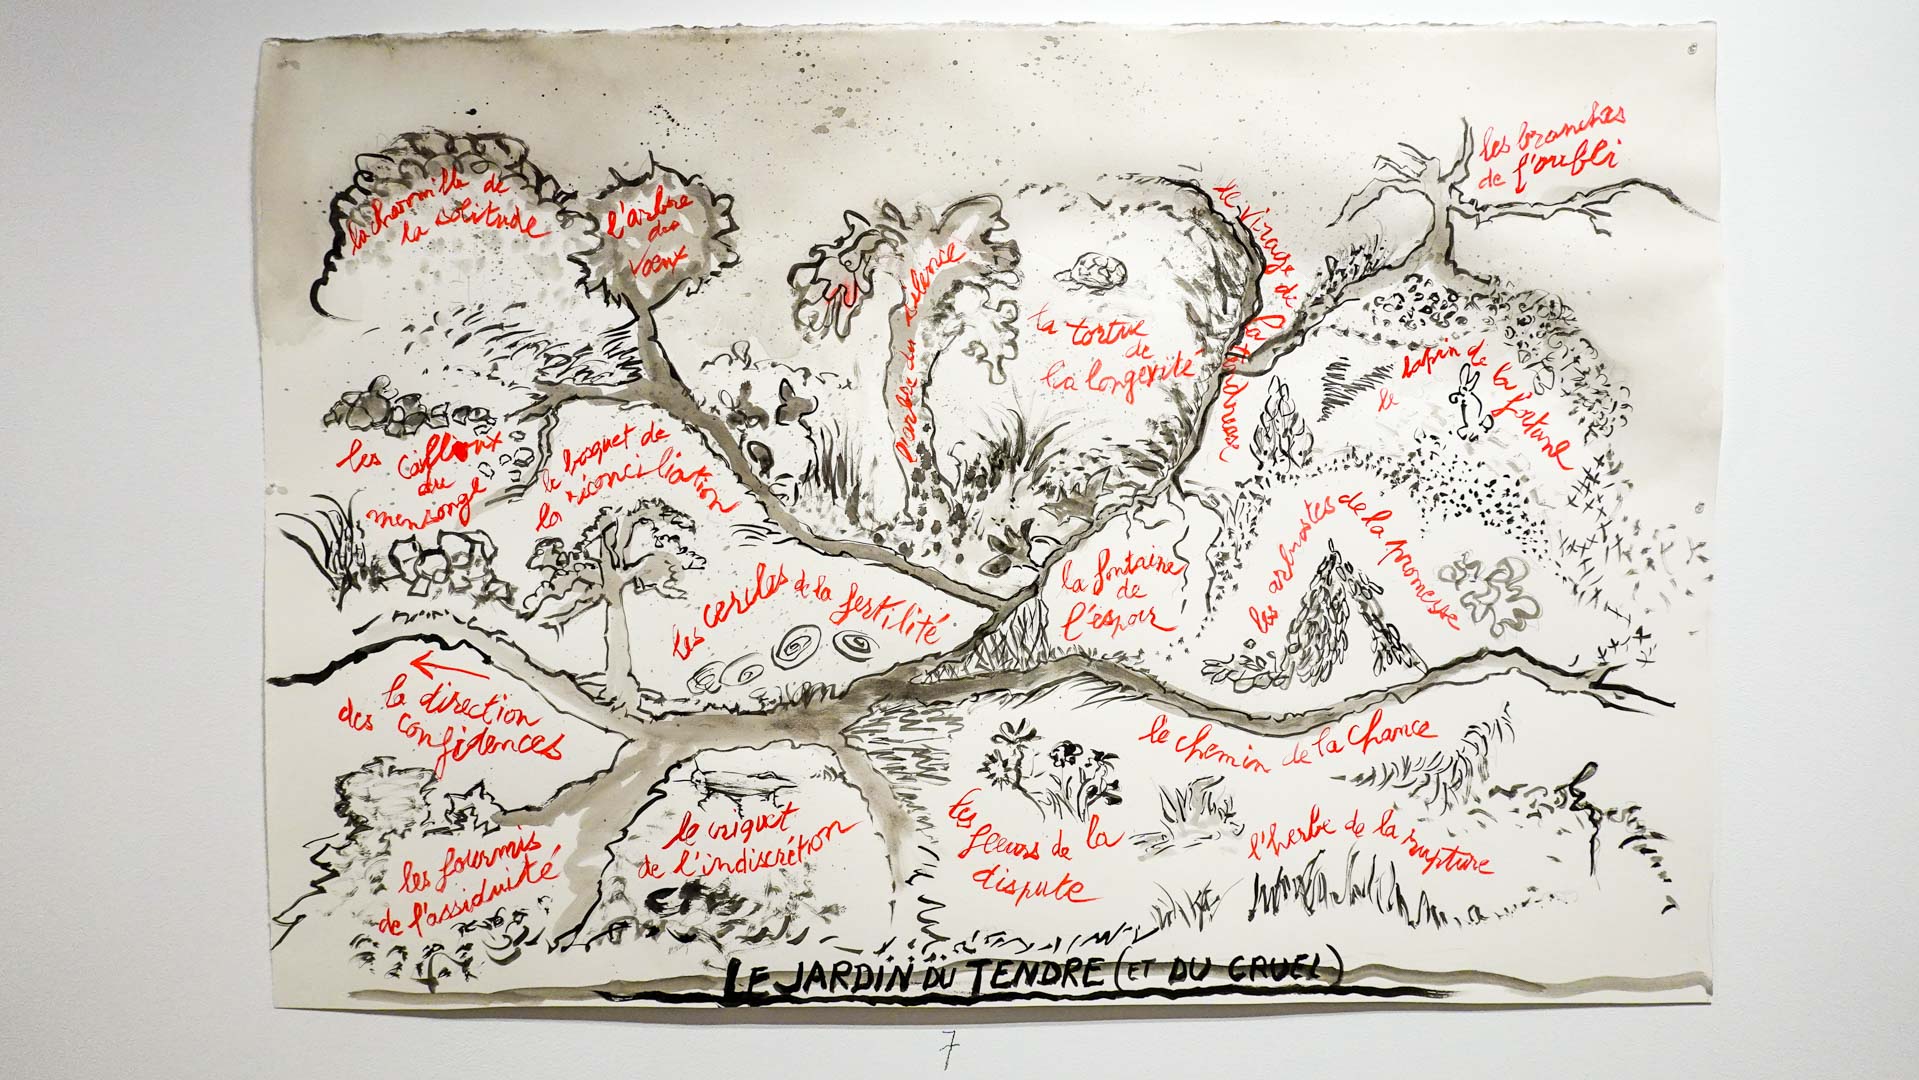 les branches
de l'oubli
la charmille de
la solitude
l'arbre
des
voeux
le virage de la tendresse
l'arbre du silence
la tortue
de
la longévité
le lapin de la fortune
les cailloux
du
mensonge
le bosquet de
la réconciliation
les arbustes de la promesse
la fontaine
de
l'espoir
les cercles de la fertilité
la direction
des confidences
le chemin de la chance
les fourmis
de l'assiduité
le criquet
de l'indiscrétion
les
fleurs de la
dispute
l'herbe de la rupture
LE JARDIN DU TENDRE (ET DU CRUEL)
7